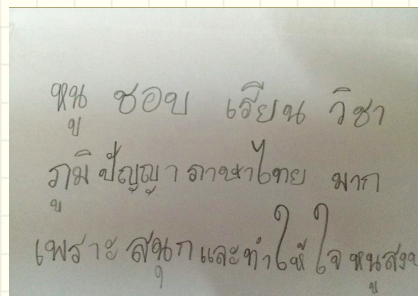 หนู ชอบ เรียน วิชา
ภูมิปัญญาภาษาไทย มาก
เพราะ สนุกและทำให้ใจหนู